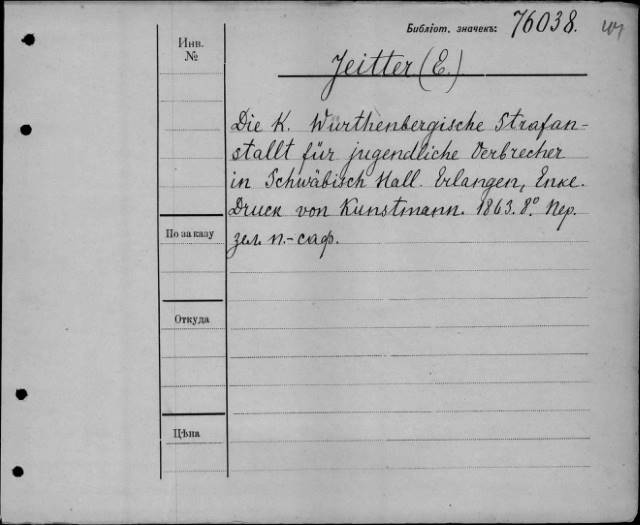 Библіот. значекъ: 76038.
Инв.
№
Jeitter (E.)
Die K. Würthenbergische Strafan-
stallt für jugendliche Verbrecher
in Schwäbisch Hall. Erlangen, Enke.
Druck von Kunstmann. 1863. 8°. Пер.
зел. п.-саф.
По заказу
Откуда
Цѣна